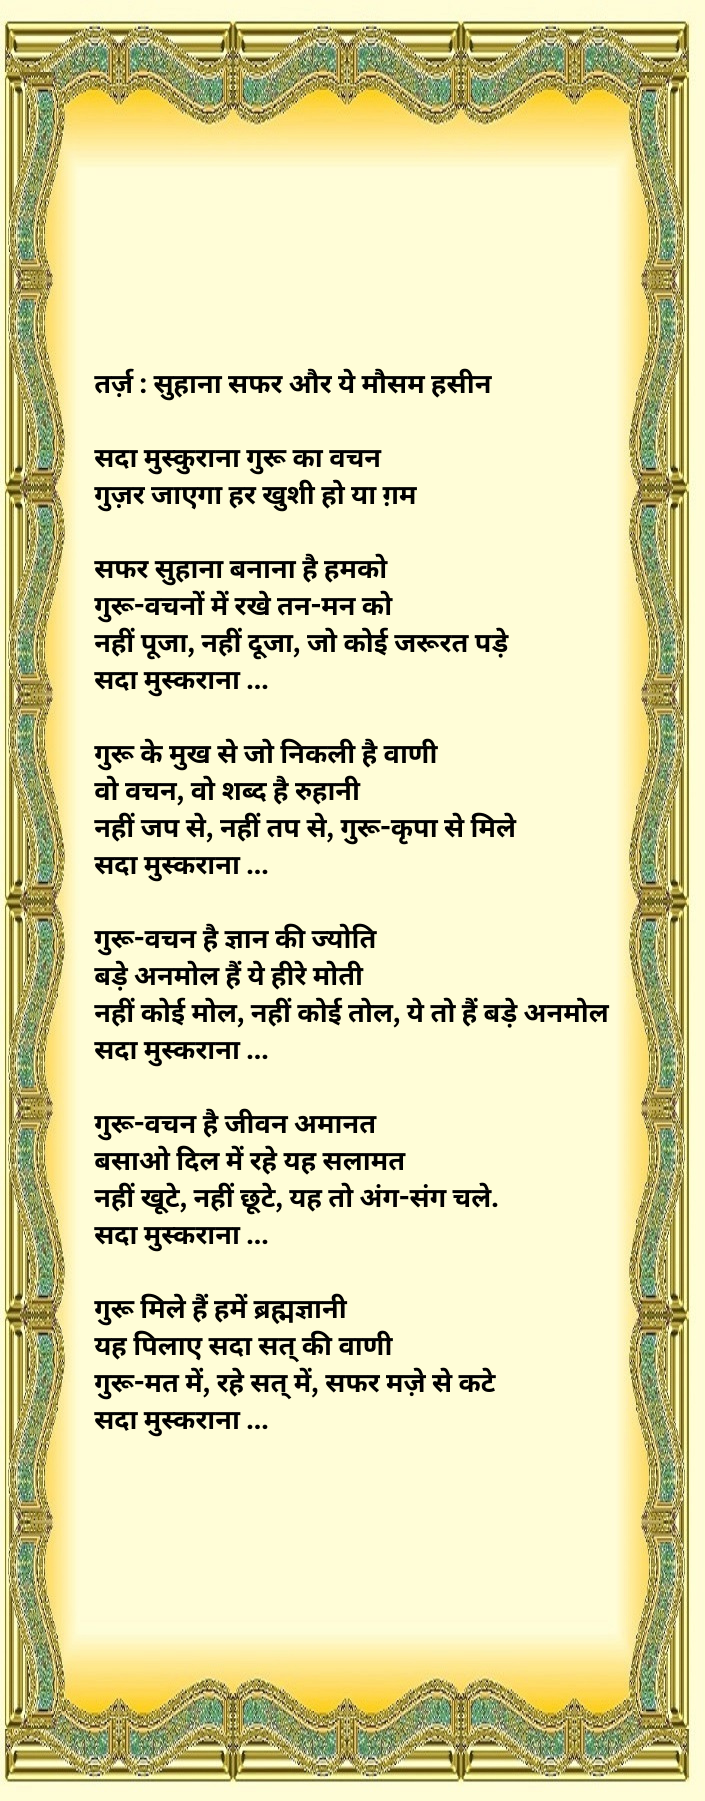 तर्ज़ : सुहाना सफर और ये मौसम हसीन
सदा मुस्कुराना गुरू का वचन
गुज़र जाएगा हर खुशी हो या ग़म
सफर सुहाना बनाना है हमको
गुरू-वचनों में रखे तन-मन को
नहीं पूजा, नहीं दूजा, जो कोई जरूरत पड़े
सदा मुस्कराना ...
गुरू के मुख से जो निकली है वाणी
वो वचन, वो शब्द है रुहानी
नहीं जप से, नहीं तप से, गुरू-कृपा से मिले
सदा मुस्कराना ...
गुरू-वचन है ज्ञान की ज्योति
बड़े अनमोल हैं ये हीरे मोती
नहीं कोई मोल, नहीं कोई तोल, ये तो हैं बड़े अनमोल
सदा मुस्कराना ...
गुरू-वचन है जीवन अमानत
बसाओ दिल में रहे यह सलामत
नहीं खूटे, नहीं छूटे, यह तो अंग-संग चले.
सदा मुस्कराना ...
गुरू मिले हैं हमें ब्रह्मज्ञानी
यह पिलाए सदा सत् की वाणी
गुरू-मत में, रहे सत् में, सफर मज़े से कटे
सदा मुस्कराना ...